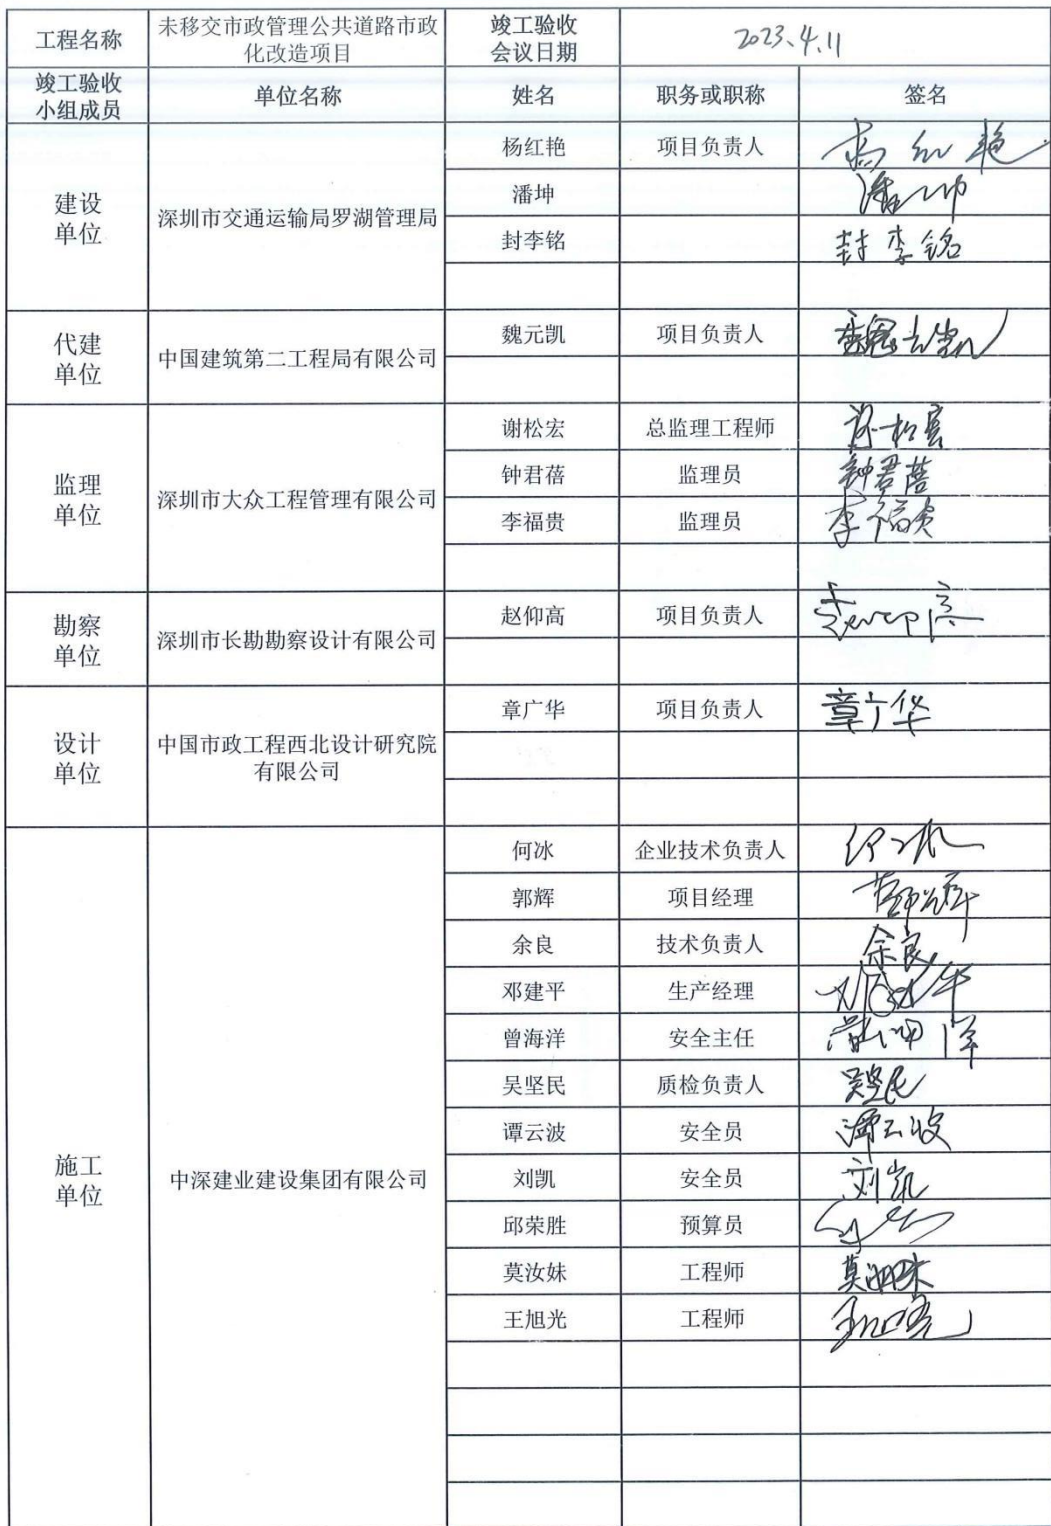 工程名称 未移交市政管理公共道路市政 竣工验收 2023.4.11
化改造项目 会议日期
竣工验收 单位名称 姓名 职务或职称 签名
小组成员
建设
单位
深圳市交通运输局罗湖管理局
杨红艳 项目负责人 杨红艳
潘坤
封李铭 封李铭
代建
单位
中国建筑第二工程局有限公司
魏元凯 项目负责人 魏元凯
监理
单位
深圳市大众工程管理有限公司
谢松宏 总监理工程师 谢松宏
钟君蓓 监理员 钟君蓓
李福贵 监理员 李福贵
勘察
单位
深圳市长勘勘察设计有限公司
赵仰高 项目负责人 赵仰高
设计
单位
中国市政工程西北设计研究院
有限公司
章广华 项目负责人 章广华
施工
单位
中深建业建设集团有限公司
何冰 企业技术负责人
郭辉 项目经理
余良 技术负责人 余良
邓建平 生产经理
曾海洋 安全主任 曾海洋
吴坚民 质检负责人 吴坚民
谭云波 安全员 谭云波
刘凯 安全员 刘凯
邱荣胜 预算员
莫汝妹 工程师 莫汝妹
王旭光 工程师 王旭光